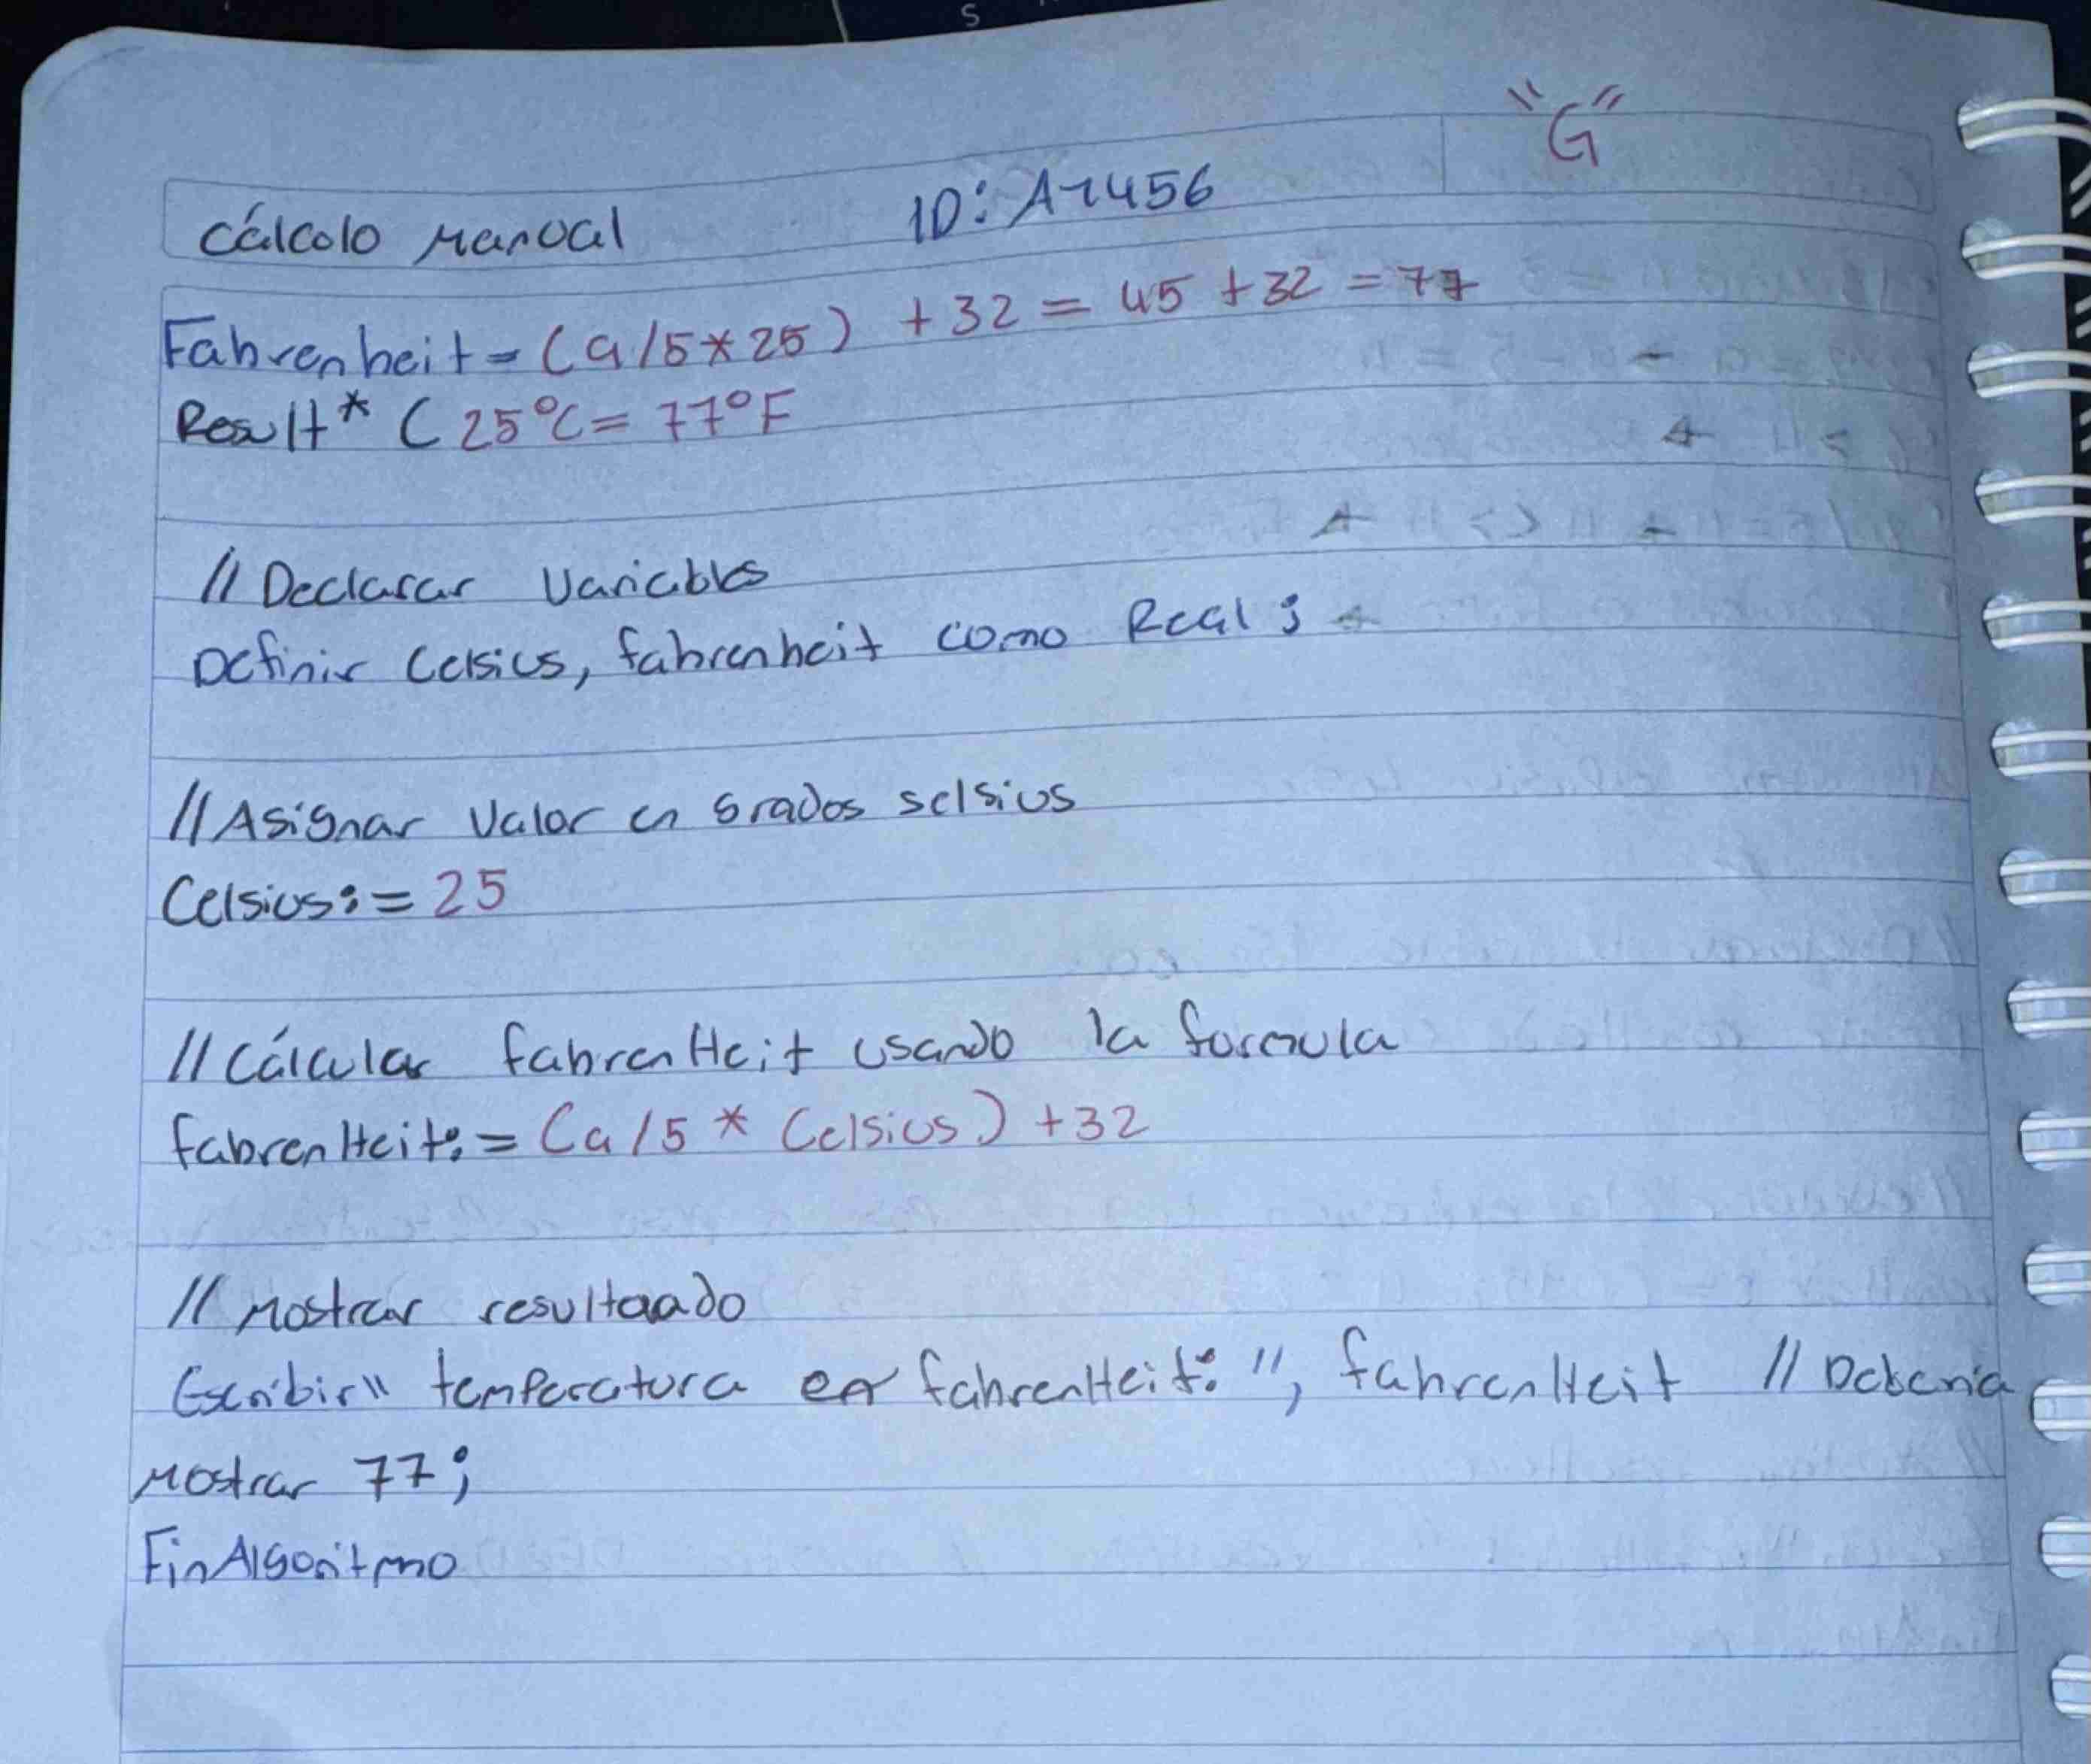 "G"
Cálculo Manual ID: A1456
Fahrenheit = (9/5*25) +32 = 45 +32 = 77
Result* ( 25°C = 77°F
// Declarar Variables
Definir Celsius, fahrenheit como Real;
// Asignar Valor en Grados selsius
Celsius:= 25
// Cálcular fahrenHeit usando la formula
fahrenHeit:= (9/5 * Celsius) +32
// Mostrar resultaado
Escribir" temperatura en fahrenHeit: ", fahrenHeit // Debería
Mostrar 77;
FinAlgoritmo